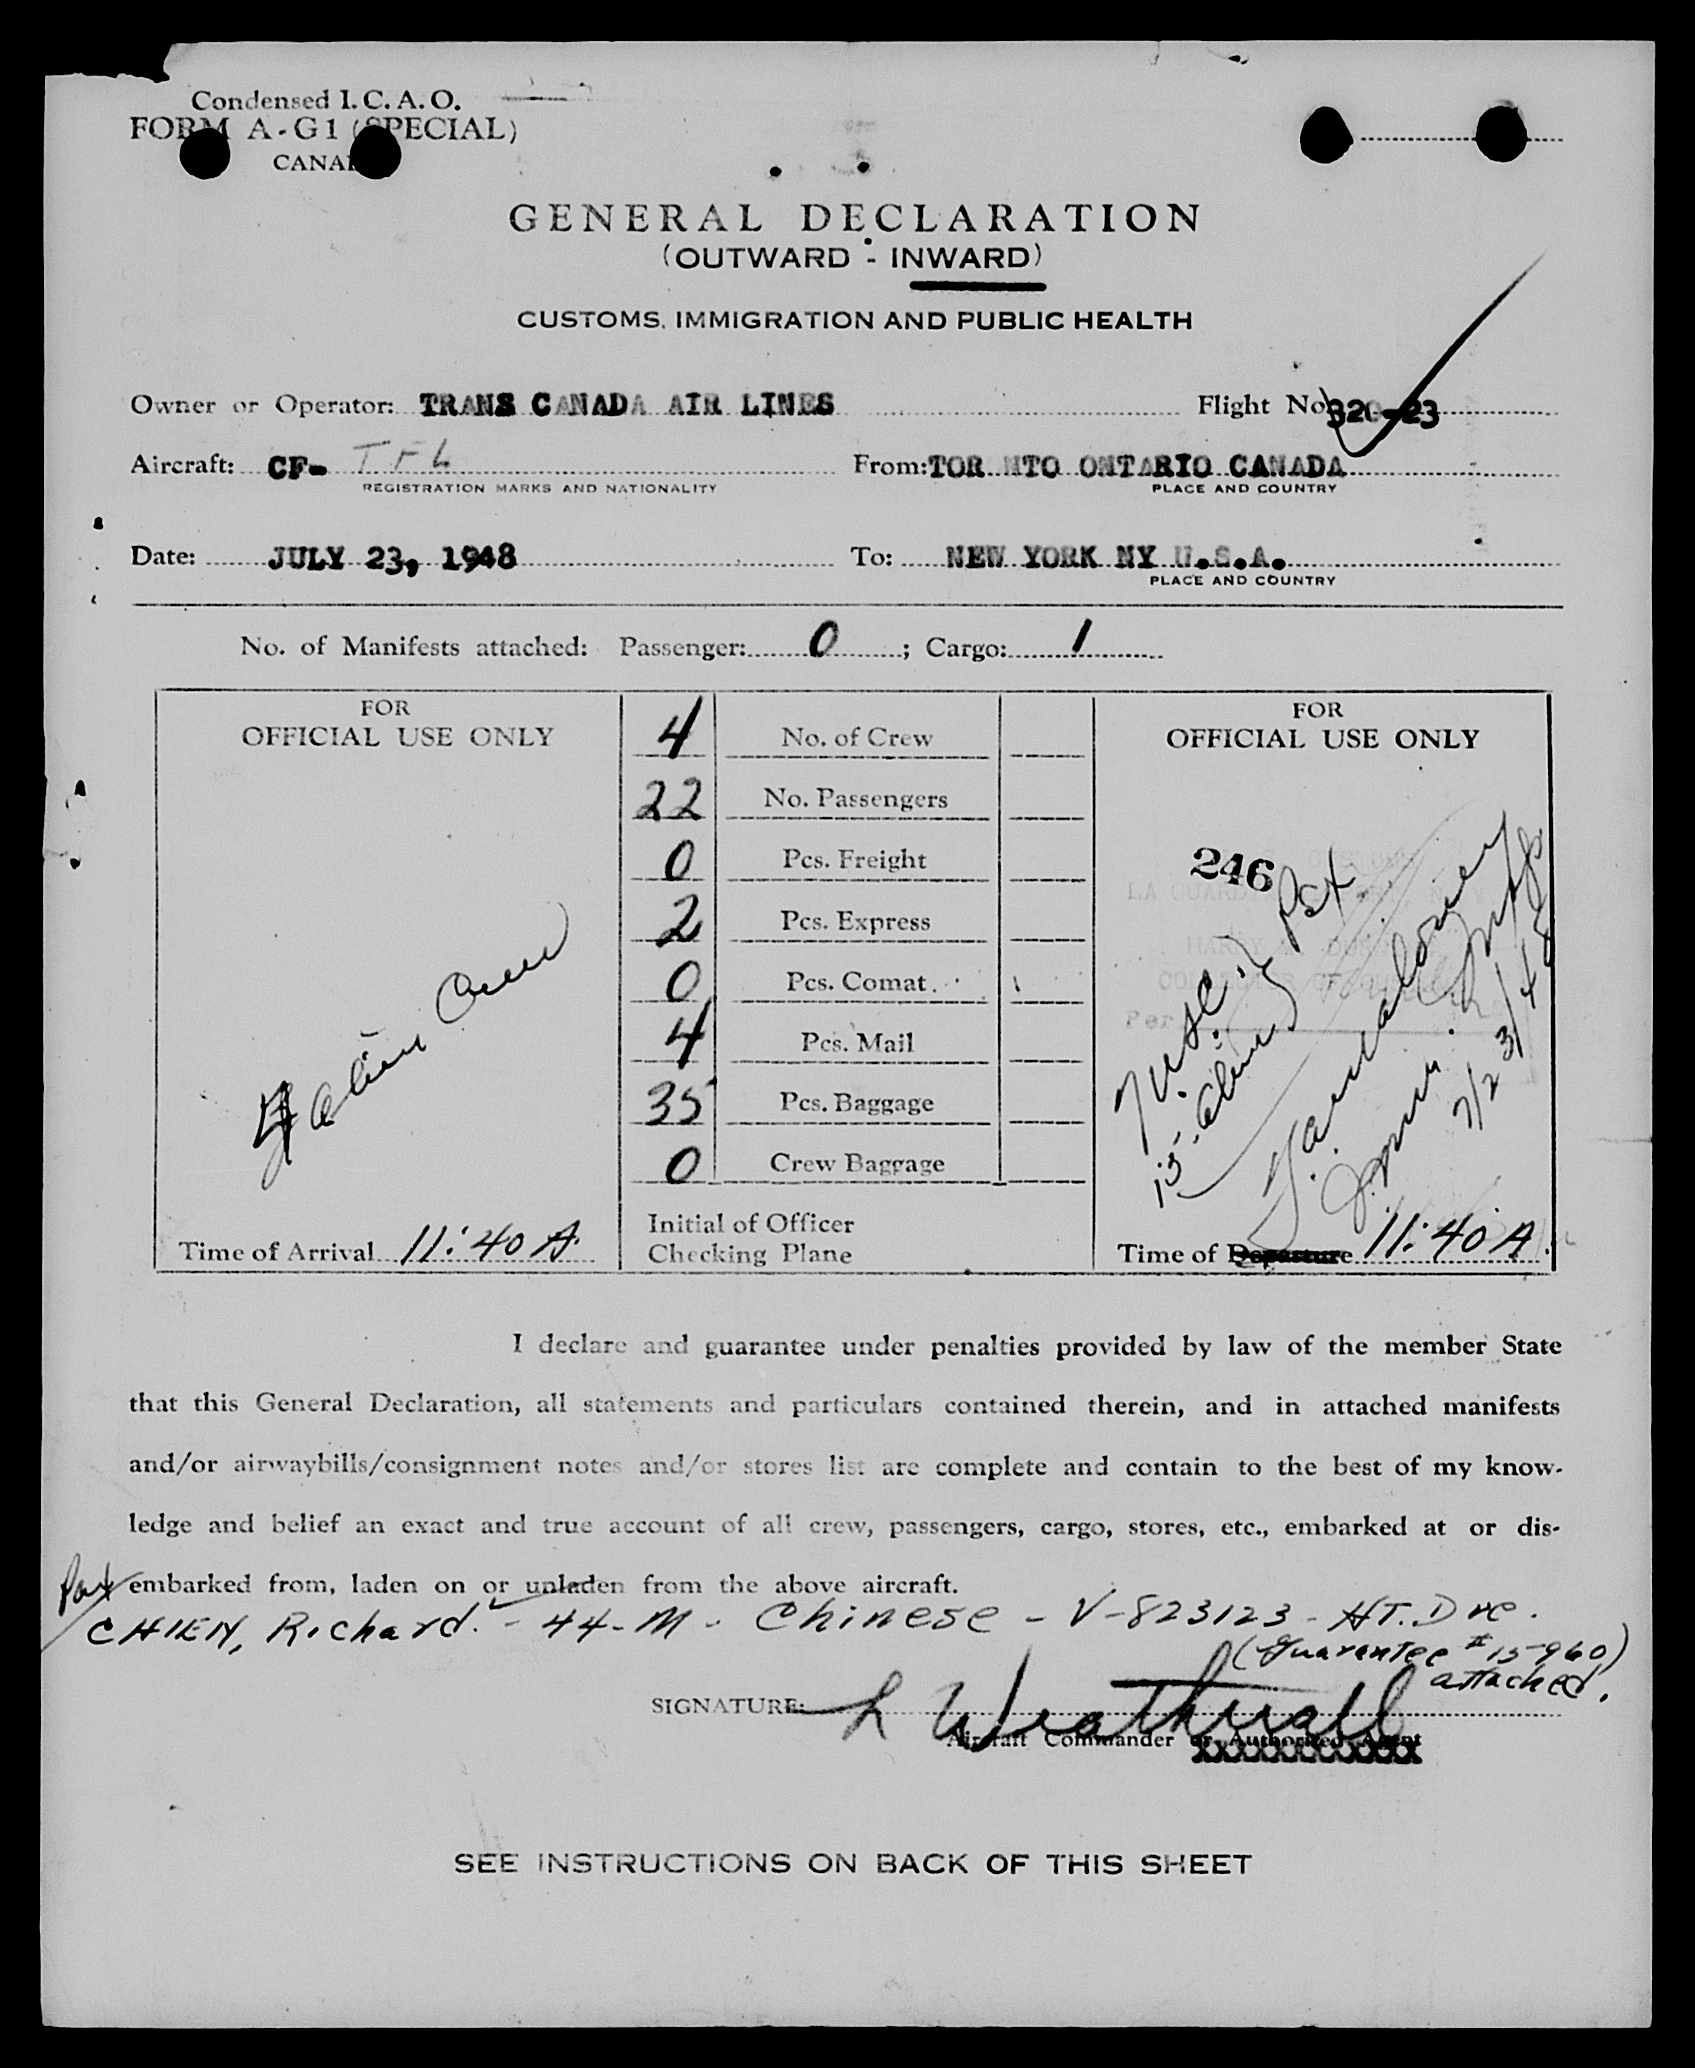 Condensed I. C. A. O.
FORM A-G1 (SPECIAL)
GENERAL DECLARATION
(OUTWARD - INWARD)
CUSTOMS, IMMIGRATION AND PUBLIC HEALTH
Owner or Operator: TRANS CANADA AIR LINES Flight No. 320-23
Aircraft: CF- TFL From: TOR NTO ONTARIO CANADA
REGISTRATION MARKS AND NATIONALITY PLACE AND COUNTRY
Date: JULY 23, 1948 To: NEW YORK NY U.S.A.
PLACE AND COUNTRY
No. of Manifests attached: Passenger: 0 ; Cargo: 1
FOR
OFFICIAL USE ONLY
4 alien Crew
Time of Arrival 11:40 A.
4 No. of Crew
22 No. Passengers
0 Pcs. Freight
2 Pcs. Express
0 Pcs. Comat
4 Pcs. Mail
35 Pcs. Baggage
0 Crew Baggage
Initial of Officer
Checking Plane
FOR
OFFICIAL USE ONLY
246
7 USC
15 - alien
7/23/48
Time of Departure 11:40 A.
I declare and guarantee under penalties provided by law of the member State
that this General Declaration, all statements and particulars contained therein, and in attached manifests
and/or airwaybills/consignment notes and/or stores list are complete and contain to the best of my know-
ledge and belief an exact and true account of all crew, passengers, cargo, stores, etc., embarked at or dis-
embarked from, laden on or unladen from the above aircraft.
Pax
CHIEN, Richard - 44 - M - Chinese - V-823123 - HT. Dre.
(Guarantee # 15960)
attached.
SIGNATURE: L Weathrall
Aircraft Commander or Authorized Agent
SEE INSTRUCTIONS ON BACK OF THIS SHEET